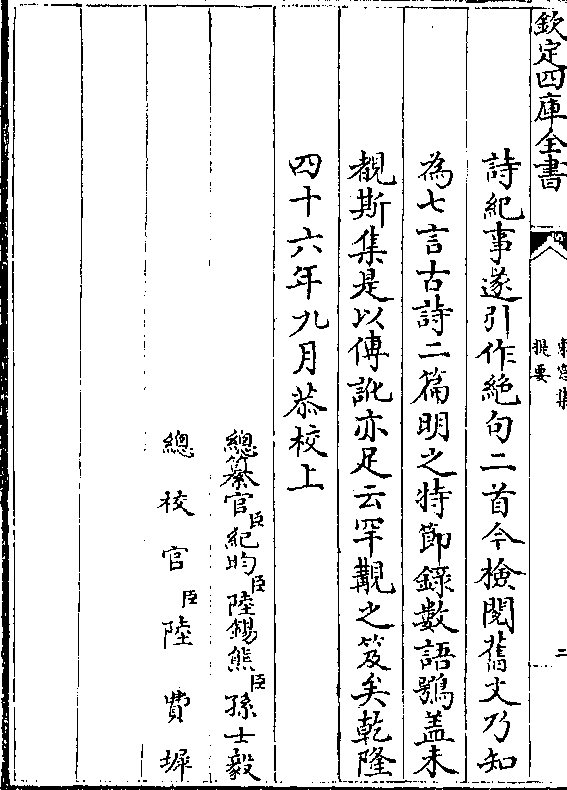 欽定四庫全書
東窓集
提要
二
詩紀事遂引作絶句二首今檢閱舊文乃知
為七言古詩二篇明之特節録數語鶚盖未
覩斯集是以傳訛亦足云罕覯之笈矣乾隆
四十六年九月恭校上
總纂官臣紀昀臣陸錫熊臣孫士毅
總校官臣陸費墀